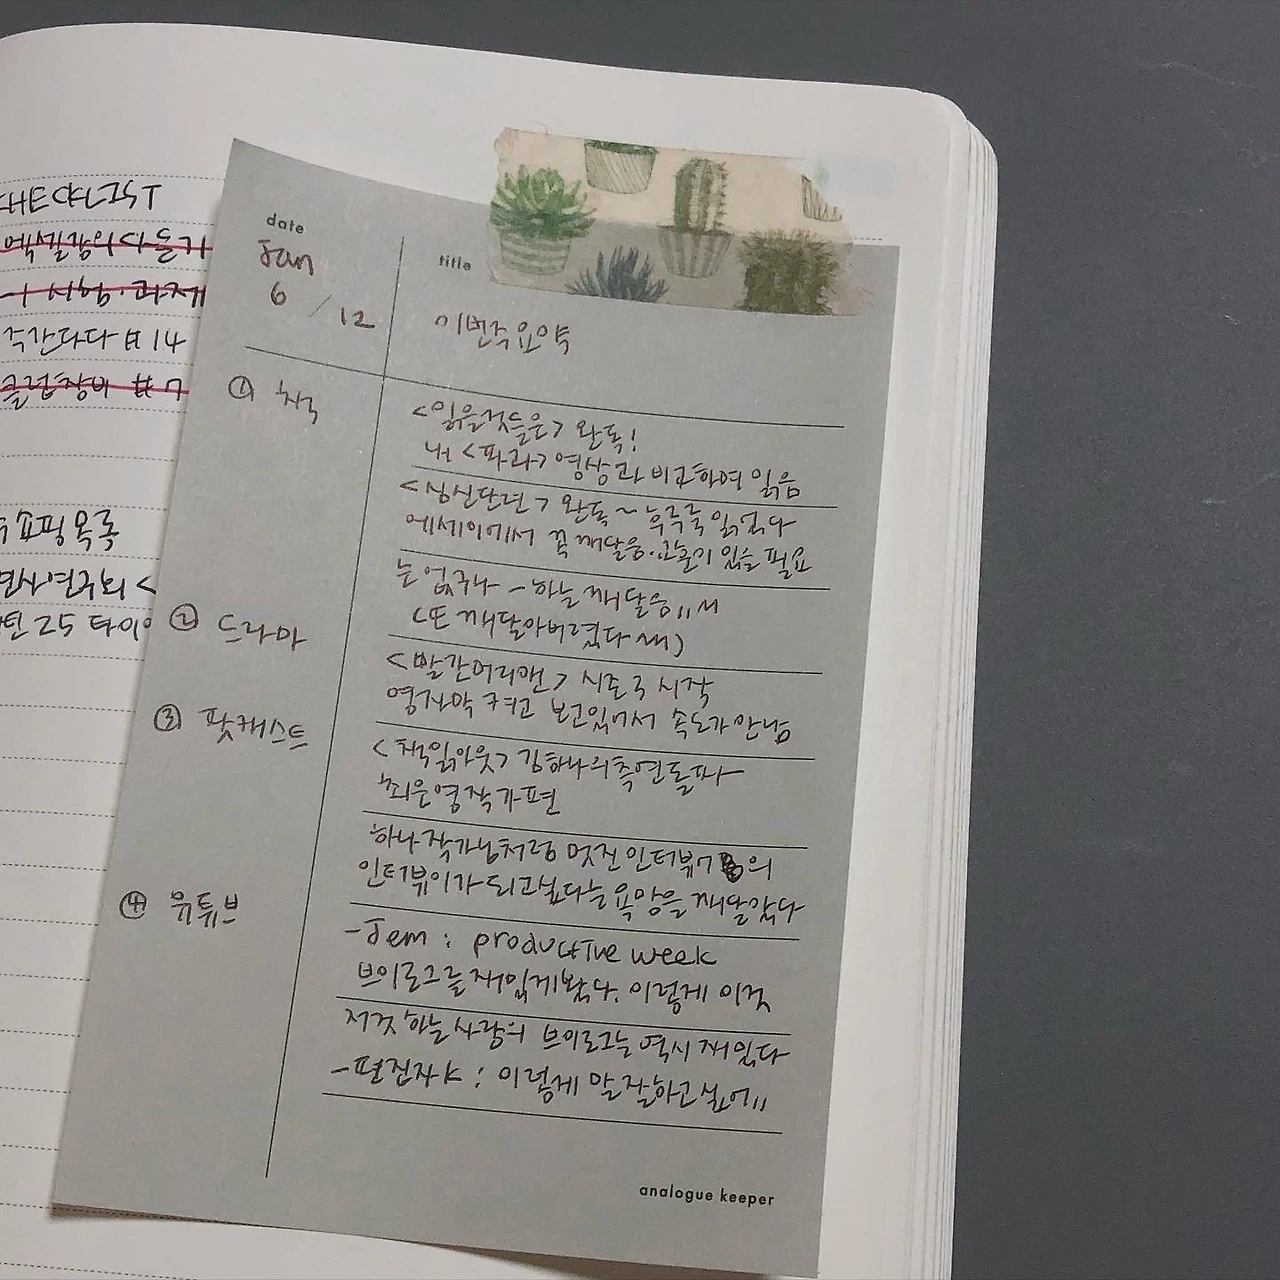 CHECKLIST
엑셀강의 다듣기
시험.과제
주간타다 #14
클럽장비 #7
쇼핑 목록
연사연주회 <
25 타이
date
Jan
6 / 12
title
이번주요약
① 책
<읽을것들은> 완독!
내 <파과> 영상과 비교하여 읽음
<심신단련> 완독~ 후루룩 읽었다
에세이에서 꼭 깨달음.교훈이 있을 필요
는 없구나 - 하는 깨달음
(또 깨달아버렸다)
② 드라마
<빨간머리앤> 시즌3 시작
영자막 켜고 보고있어서 속도가 안남
③ 팟캐스트
<책읽아웃> 김하나의측면돌파
최은영작가편
하나작가님처럼 멋진 인터뷰어의
인터뷰이가 되고싶다는 욕망을 깨달았다
④ 유튜브
-Jem : productive week
브이로그를 재밌게봤다. 이렇게 이것
저것 하는 사람의 브이로그는 역시 재밌다
-편집자K : 이렇게 말잘하고싶어
analogue keeper